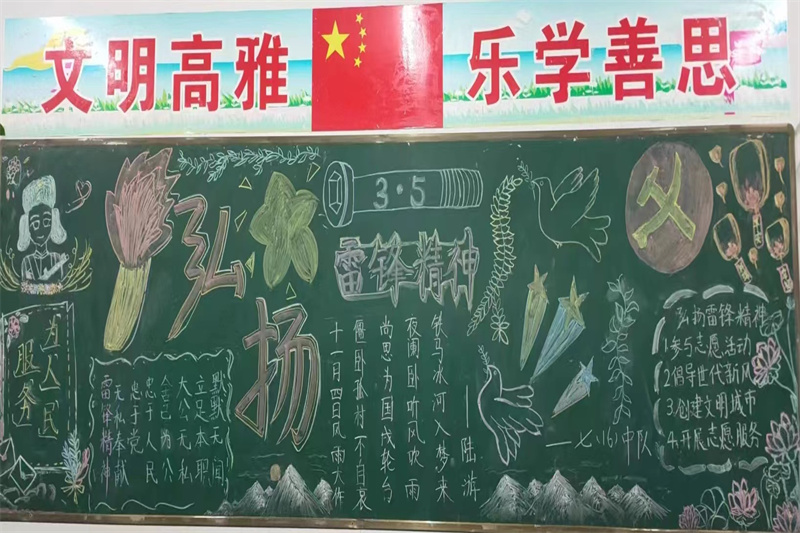 文明高雅
乐学善思
弘扬
3·5
雷锋精神
为人民
服务
雷锋精神
无私奉献
忠于党
忠于人民
舍己为公
大公无私
立足本职
默默无闻
十一月四日风雨大作
僵卧孤村不自哀
尚思为国戍轮台
夜阑卧听风吹雨
铁马冰河入梦来
——陆游
—七(16)中队
弘扬雷锋精神
1参与志愿活动
2倡导世代新风
3创建文明城市
4开展志愿服务